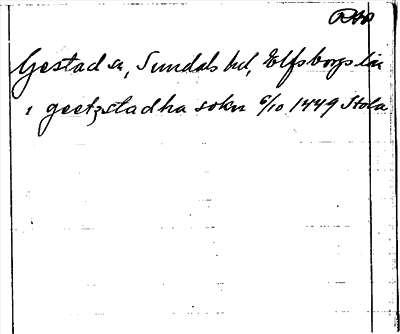 Gestad sn, Sundals hd, Elfsborgs län
i geetzstadha sokn 6/10 1449 Stola